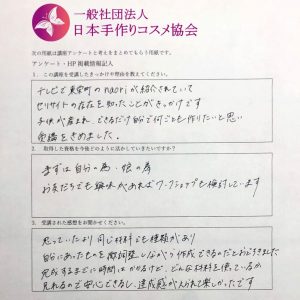 一般社団法人
日本手作りコスメ協会
次の用紙は講座アンケートと考えをまとめてもらう用紙です。
アンケート・HP 掲載情報記入
1. この講座を受講したきっかけや理由を教えてください。
テレビで東栄町のnaoriが紹介されていて
セリサイトの存在を知ったことがきっかけです
子供が産まれ、できるだけ自分で何ごとも作りたいと思い
受講をきめました。
2. 取得した資格を今後どのように活かしていきたいですか?
まずは自分の為・娘の為
お友だちでも興味があればワークショップも検討しています
3. 受講された感想をお聞かせください。
思っていたより同じ材料でも種類があり
自分にあったものを微調整しながら作成できるのだとおどろきました
完成するまでに時間はかかるけど、どんな材料を使っているか
見れるので安心できるし、達成感が入られて楽しかったです